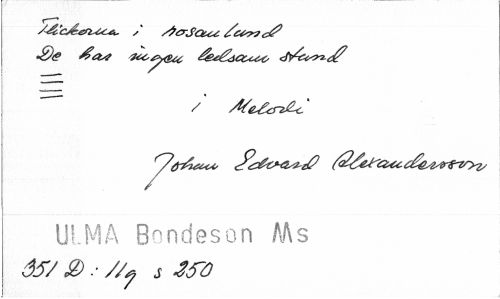 Flickorna i rosanlund
De har ingen ledsam stund
1 Melodi
Johan Edvard Alexandersson
ULMA Bondeson Ms
351 D: 11q s 250